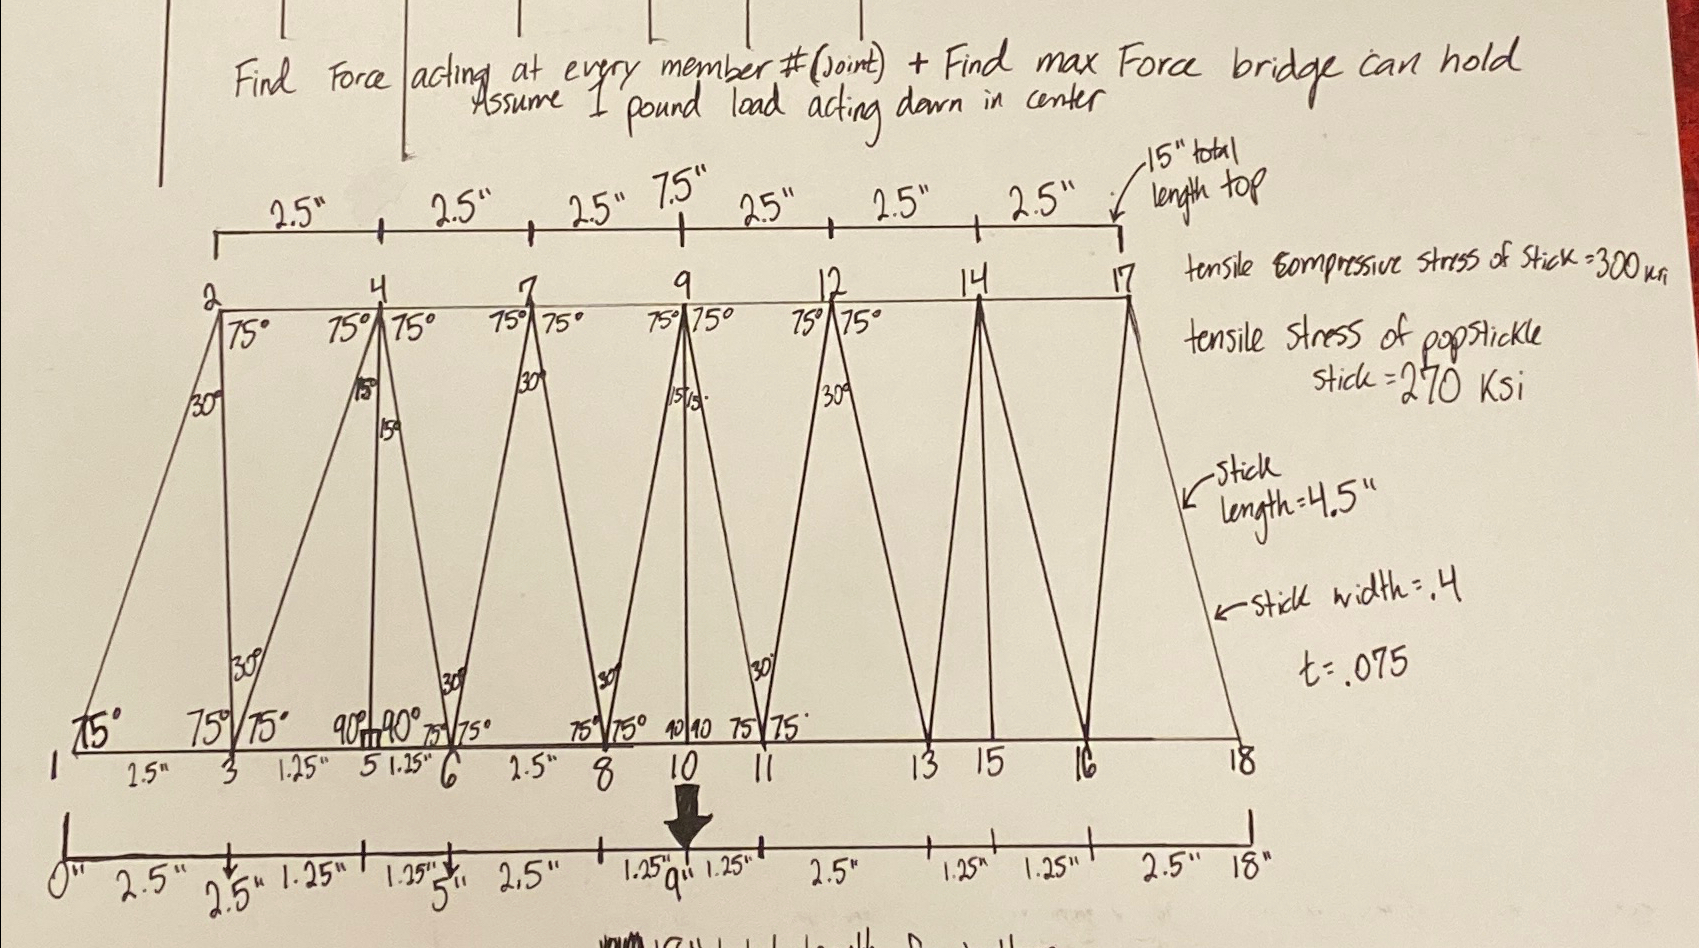 Find Force acting at every member #(Joint) + Find max Force bridge can hold
Assume 1 pound load acting down in center
15" total
length top
7.5"
2.5" 2.5" 2.5" 2.5" 2.5" 2.5"
2 4 7 9 12 14 17
tensile compressive stress of stick = 300 ksi
75° 75° 75° 75° 75° 75° 75° 75° 75°
tensile stress of popstickle
stick = 270 Ksi
30° 15° 30° 15 15° 30°
15°
stick
length = 4.5"
stick width = .4
t = .075
30° 30° 30° 30°
75° 75° 75° 90° 90° 75° 75° 75° 75° 90 90 75 75°
1 3 5 6 8 10 11 13 15 16 18
2.5" 1.25" 1.25" 2.5"
0" 2.5" 2.5" 1.25" 1.25" 5" 2.5" 1.25" 9" 1.25" 2.5" 1.25" 1.25" 2.5" 18"